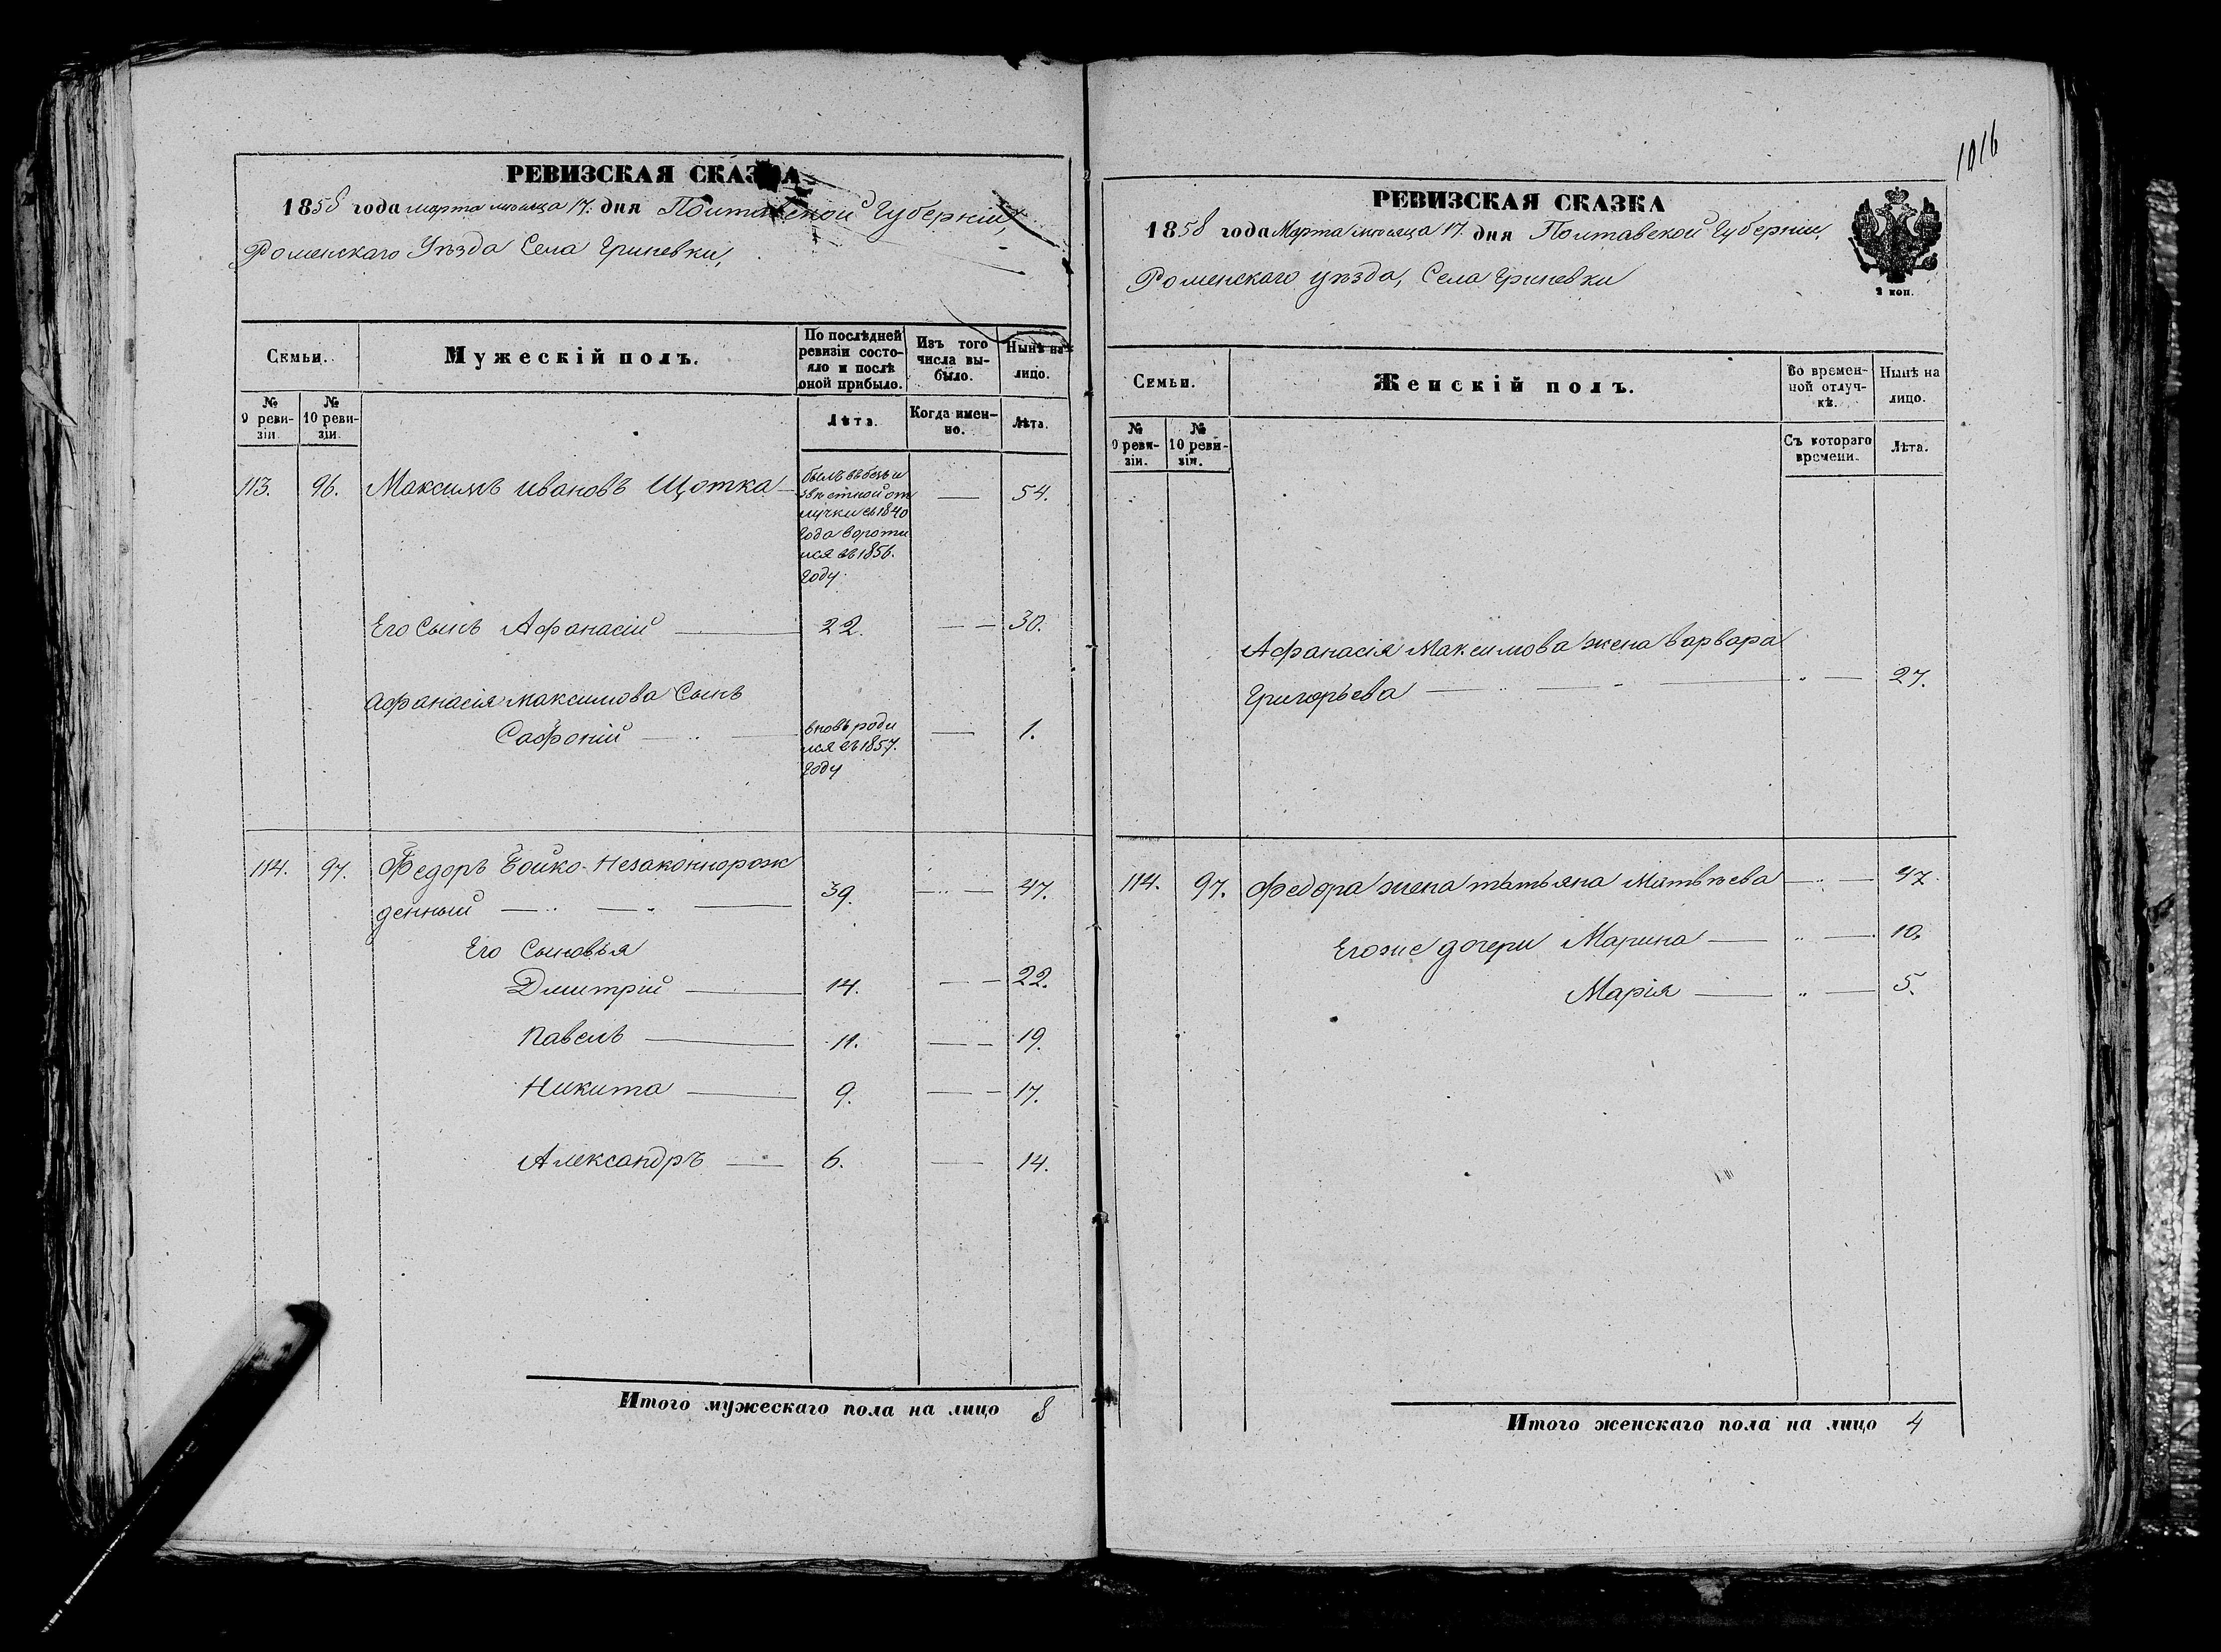 РЕВИЗСКАЯ СКАЗКА
1858 года марта месяца 17. дня Полтавской Губерніи,
Роменскаго Уѣзда Села Гриневки,
Семьи.
Мужескій полъ.
По послѣдней ревизіи состояло и послѣ оной прибыло.
Изъ того числа выбыло.
Нынѣ на лицо.
№ 9 ревизіи.
№ 10 ревизіи.
Лѣта.
Когда именно.
Лѣта.
113. 96. Максимъ Ивановъ Щотка — 54.
былъ въ безъи
звѣстной от
лучки съ 1840
года вороти
лся въ 1856.
году.
Его Сынъ Афанасій — 22. — — 30.
Афанасія Максимова Сынъ
Сафоній — 1.
вновь роди
лся въ 1857.
году
114. 97. Федоръ Бойко Незаконнорож
денный — 39. — 47.
Его Сыновья
Дмитрій — 14. — — 22.
Павелъ — 11. — — 19.
Никита — 9. — — 17.
Александръ — 6. — 14.
Итого мужескаго пола на лицо 8
1016
РЕВИЗСКАЯ СКАЗКА
1858 года Марта месяца 17. дня Полтавской Губерніи,
Роменскаго уѣзда, Села Гриневки
2 коп.
Семьи.
Женскій полъ.
Во временной отлучкѣ.
Нынѣ на лицо.
№ 9 ревизіи.
№ 10 ревизіи.
Съ котораго времени.
Лѣта.
Афанасія Максимова жена Варвара
Григорьева — 27.
114. 97. Федора жена Татьяна Матвѣева — 47.
Его же дочери Марина — 10.
Марія — 5.
Итого женскаго пола на лицо 4